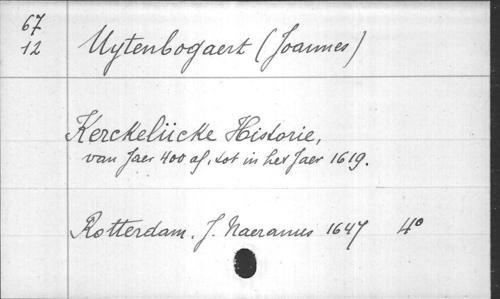 67
12
Uytenbogaert (Joannes)
Kerckelücke Historie,
van Jaer 400 af, tot in het Jaer 1619.
Rotterdam. J. Naeranus 1647 4°